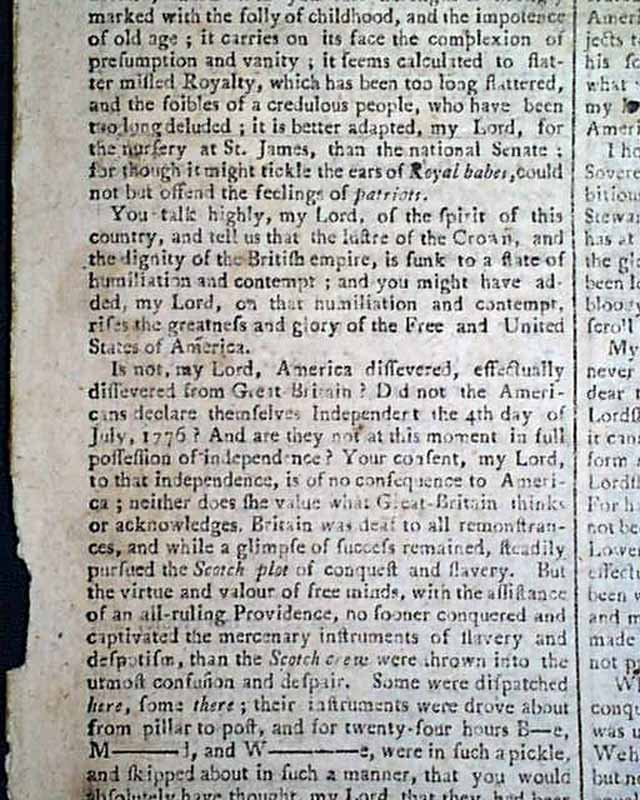 marked with the folly of childhood, and the impotence
of old age ; it carries on its face the complexion of
preſumption and vanity ; it ſeems calculated to flat-
ter miſled Royalty, which has been too long flattered,
and the foibles of a credulous people, who have been
too long deluded ; it is better adapted, my Lord, for
the nurſery at St. James, than the national Senate ;
for though it might tickle the ears of Royal babes, could
not but offend the feelings of patriots.
You talk highly, my Lord, of the ſpirit of this
country, and tell us that the luſtre of the Crown, and
the dignity of the Britiſh empire, is ſunk to a ſtate of
humiliation and contempt ; and you might have ad-
ded, my Lord, on that humiliation and contempt,
riſes the greatneſs and glory of the Free and United
States of America.
Is not, my Lord, America diſſevered, effectually
diſſevered from Great-Britain ? Did not the Ameri-
cans declare themſelves Independent the 4th day of
July, 1776 ? And are they not at this moment in full
poſſeſſion of independence ? Your conſent, my Lord,
to that independence, is of no conſequence to Ameri-
ca ; neither does ſhe value what Great-Britain thinks
or acknowledges. Britain was deaf to all remonſtran-
ces, and while a glimpſe of ſucceſs remained, ſteadily
purſued the Scotch plot of conqueſt and ſlavery. But
the virtue and valour of free minds, with the aſſiſtance
of an all-ruling Providence, no ſooner conquered and
captivated the mercenary inſtruments of ſlavery and
deſpotiſm, than the Scotch crew were thrown into the
utmoſt confuſion and deſpair. Some were diſpatched
here, ſome there ; their inſtruments were drove about
from pillar to poſt, and for twenty-four hours B—e,
M———d, and W————e, were in ſuch a pickle,
and ſkipped about in ſuch a manner, that you would
abſolutely have thought, my Lord, that they had been
Ameri
jects t
his
what
my
Ameri
I ho
Sovere
bitious
Stewar
has at
the gl
been l
bloo y
ſcroll
My
never
dear
Lordſh
it can
form
Lordſh
For h
not be
Lower
effect
been
and m
made
not p
W
conqu
was u
Weh
but n